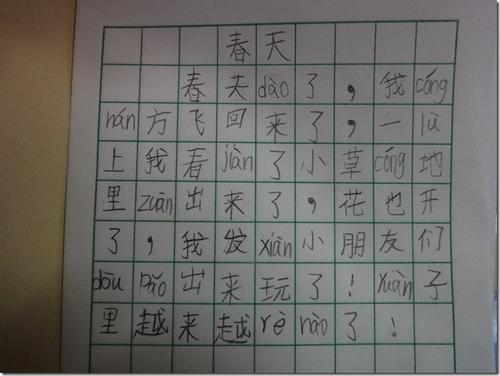 春天
春天dào了，我cóng
nán方飞回来了，一lù
上我看jiàn了小草cóng地
里zuān出来了，花也开
了，我发xiàn小朋友们
dōu pǎo出来玩了！yuàn子
里越来越rè nào了！